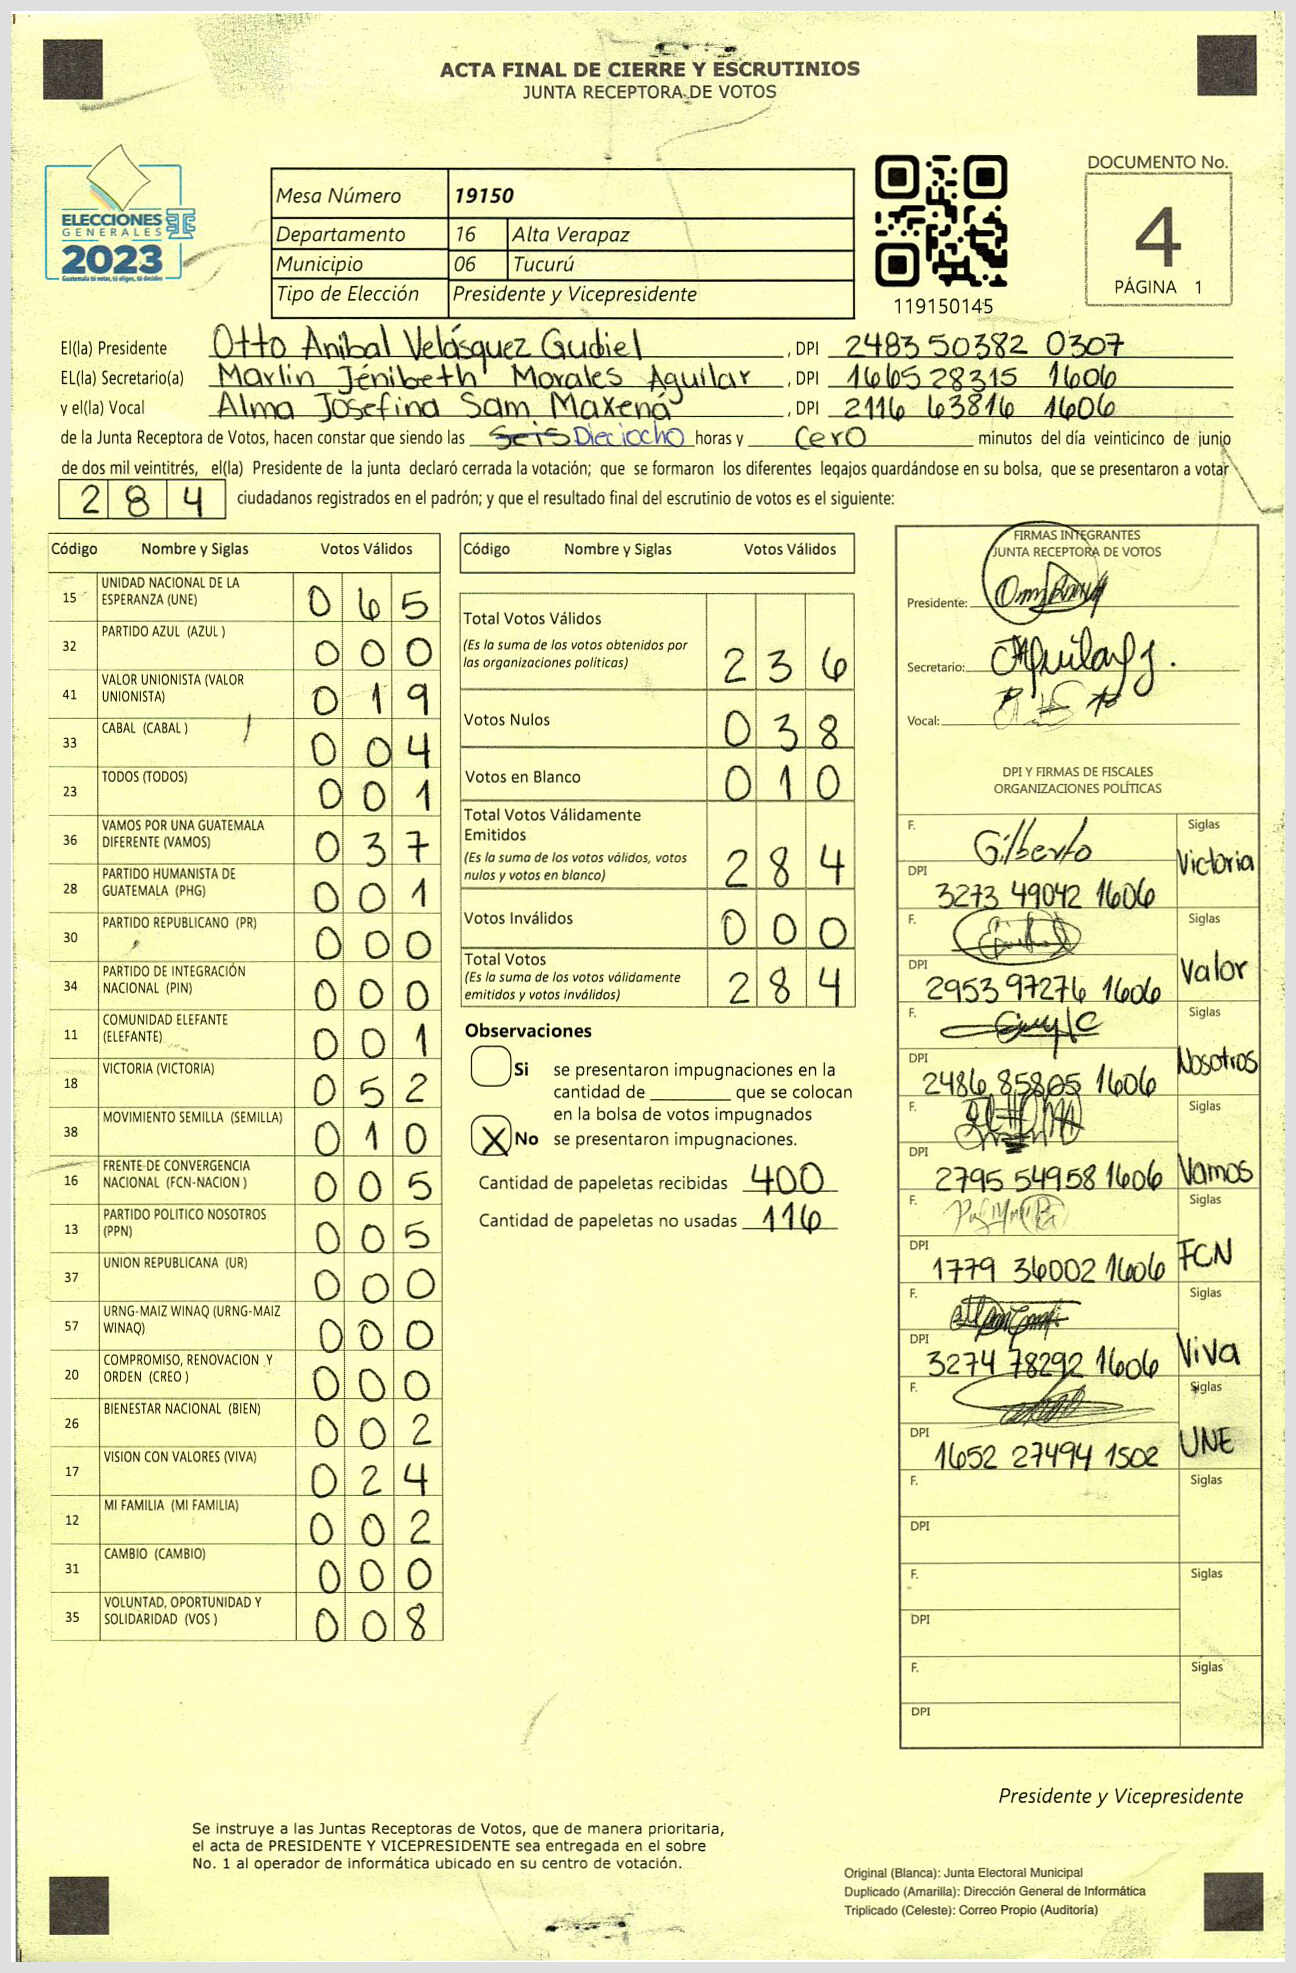 ACTA FINAL DE CIERRE Y ESCRUTINIOS
JUNTA RECEPTORA DE VOTOS
ELECCIONES
GENERALES
2023
Guatemala tú votas, tú eliges, tú decides
Mesa Número 19150
Departamento 16 Alta Verapaz
Municipio 06 Tucurú
Tipo de Elección Presidente y Vicepresidente
119150145
DOCUMENTO No.
4
PÁGINA 1
El(la) Presidente Otto Anibal Velásquez Gudiel, DPI 2483 50382 0307
EL(la) Secretario(a) Marlin Jénibeth Morales Aguilar, DPI 1665 28315 1606
y el(la) Vocal Alma Josefina Sam Maxená, DPI 2116 63816 1606
de la Junta Receptora de Votos, hacen constar que siendo las Seis Dieciocho horas y Cero minutos del día veinticinco de junio
de dos mil veintitrés, el(la) Presidente de la junta declaró cerrada la votación; que se formaron los diferentes legajos guardándose en su bolsa, que se presentaron a votar
284 ciudadanos registrados en el padrón; y que el resultado final del escrutinio de votos es el siguiente:
Código Nombre y Siglas Votos Válidos
15 UNIDAD NACIONAL DE LA ESPERANZA (UNE) 065
32 PARTIDO AZUL (AZUL ) 000
41 VALOR UNIONISTA (VALOR UNIONISTA) 019
33 CABAL (CABAL ) 004
23 TODOS (TODOS) 001
36 VAMOS POR UNA GUATEMALA DIFERENTE (VAMOS) 037
28 PARTIDO HUMANISTA DE GUATEMALA (PHG) 001
30 PARTIDO REPUBLICANO (PR) 000
34 PARTIDO DE INTEGRACIÓN NACIONAL (PIN) 000
11 COMUNIDAD ELEFANTE (ELEFANTE) 001
18 VICTORIA (VICTORIA) 052
38 MOVIMIENTO SEMILLA (SEMILLA) 010
16 FRENTE DE CONVERGENCIA NACIONAL (FCN-NACION ) 005
13 PARTIDO POLITICO NOSOTROS (PPN) 005
37 UNION REPUBLICANA (UR) 000
57 URNG-MAIZ WINAQ (URNG-MAIZ WINAQ) 000
20 COMPROMISO, RENOVACION Y ORDEN (CREO ) 000
26 BIENESTAR NACIONAL (BIEN) 002
17 VISION CON VALORES (VIVA) 024
12 MI FAMILIA (MI FAMILIA) 002
31 CAMBIO (CAMBIO) 000
35 VOLUNTAD, OPORTUNIDAD Y SOLIDARIDAD (VOS ) 008
Código Nombre y Siglas Votos Válidos
Total Votos Válidos 236
(Es la suma de los votos obtenidos por las organizaciones políticas)
Votos Nulos 038
Votos en Blanco 010
Total Votos Válidamente Emitidos 284
(Es la suma de los votos válidos, votos nulos y votos en blanco)
Votos Inválidos 000
Total Votos 284
(Es la suma de los votos válidamente emitidos y votos inválidos)
Observaciones
Si se presentaron impugnaciones en la
cantidad de ________ que se colocan
en la bolsa de votos impugnados
X No se presentaron impugnaciones.
Cantidad de papeletas recibidas 400
Cantidad de papeletas no usadas 116
FIRMAS INTEGRANTES
JUNTA RECEPTORA DE VOTOS
Presidente:
Secretario:
Vocal:
DPI Y FIRMAS DE FISCALES
ORGANIZACIONES POLÍTICAS
F. Gilberto Siglas Victoria
DPI 3273 49042 1606
F. Siglas Valor
DPI 2953 97276 1606
F. Siglas Nosotros
DPI 2486 85805 1606
F. Siglas Vamos
DPI 2795 54958 1606
F. Siglas FCN
DPI 1779 36002 1606
F. Siglas Viva
DPI 3274 78292 1606
F. Siglas UNE
DPI 1652 27494 1502
F. Siglas
DPI
F. Siglas
DPI
F. Siglas
DPI
Presidente y Vicepresidente
Se instruye a las Juntas Receptoras de Votos, que de manera prioritaria,
el acta de PRESIDENTE Y VICEPRESIDENTE sea entregada en el sobre
No. 1 al operador de informática ubicado en su centro de votación.
Original (Blanca): Junta Electoral Municipal
Duplicado (Amarilla): Dirección General de Informática
Triplicado (Celeste): Correo Propio (Auditoría)